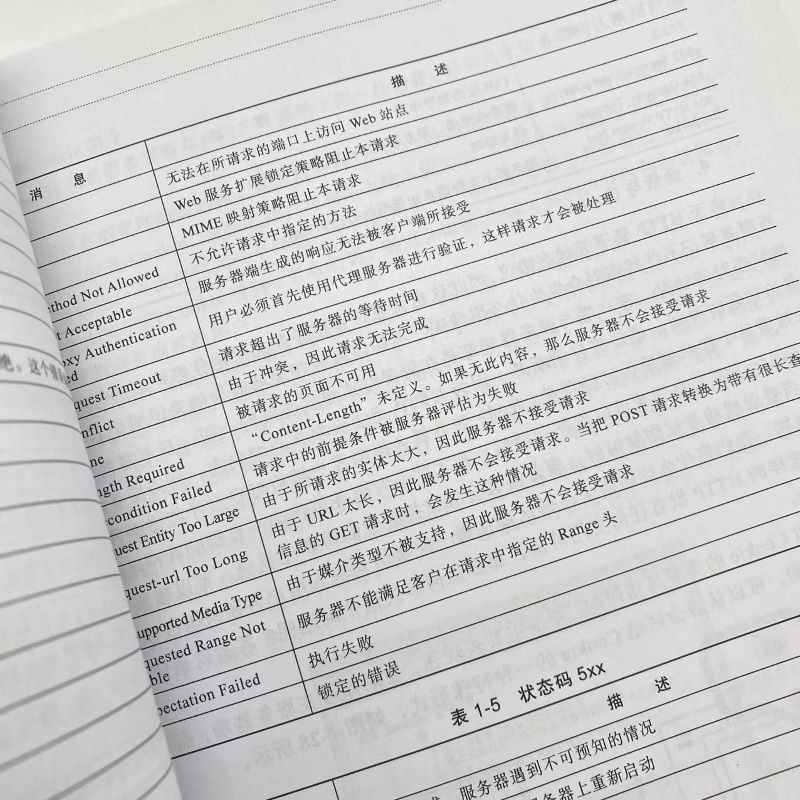 消 息 描 述
无法在所请求的端口上访问 Web 站点
Web 服务扩展锁定策略阻止本请求
MIME 映射策略阻止本请求
ethod Not Allowed 不允许请求中指定的方法
t Acceptable 服务器端生成的响应无法被客户端所接受
oxy Authentication 用户必须首先使用代理服务器进行验证，这样请求才会被处理
ed
quest Timeout 请求超出了服务器的等待时间
nflict 由于冲突，因此请求无法完成
ne 被请求的页面不可用
ngth Required “Content-Length” 未定义。如果无此内容，那么服务器不会接受请求
condition Failed 请求中的前提条件被服务器评估为失败
quest Entity Too Large 由于所请求的实体太大，因此服务器不接受请求
quest-url Too Long 由于 URL 太长，因此服务器不会接受请求。当把 POST 请求转换为带有很长查
信息的 GET 请求时，会发生这种情况
upported Media Type 由于媒介类型不被支持，因此服务器不会接受请求
quested Range Not 服务器不能满足客户在请求中指定的 Range 头
ble
pectation Failed 执行失败
锁定的错误
表 1-5 状态码 5xx
描 述
服务器遇到不可预知的情况
务器上重新启动